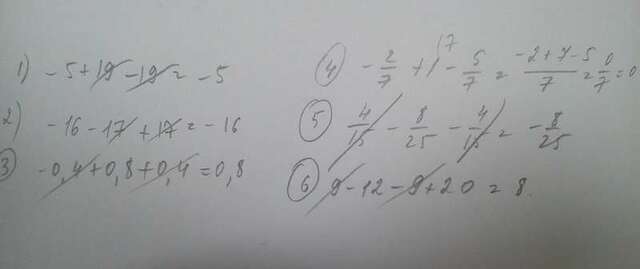 1) -5+19-19=-5
2) -16-17+17=-16
3) -0,4+0,8+0,4=0,8
4) -2/7+1 7-5/7=-2+7-5/7=0/7=0
5) 4/15-8/25-4/15=-8/25
6) 9-12-9+20=8.